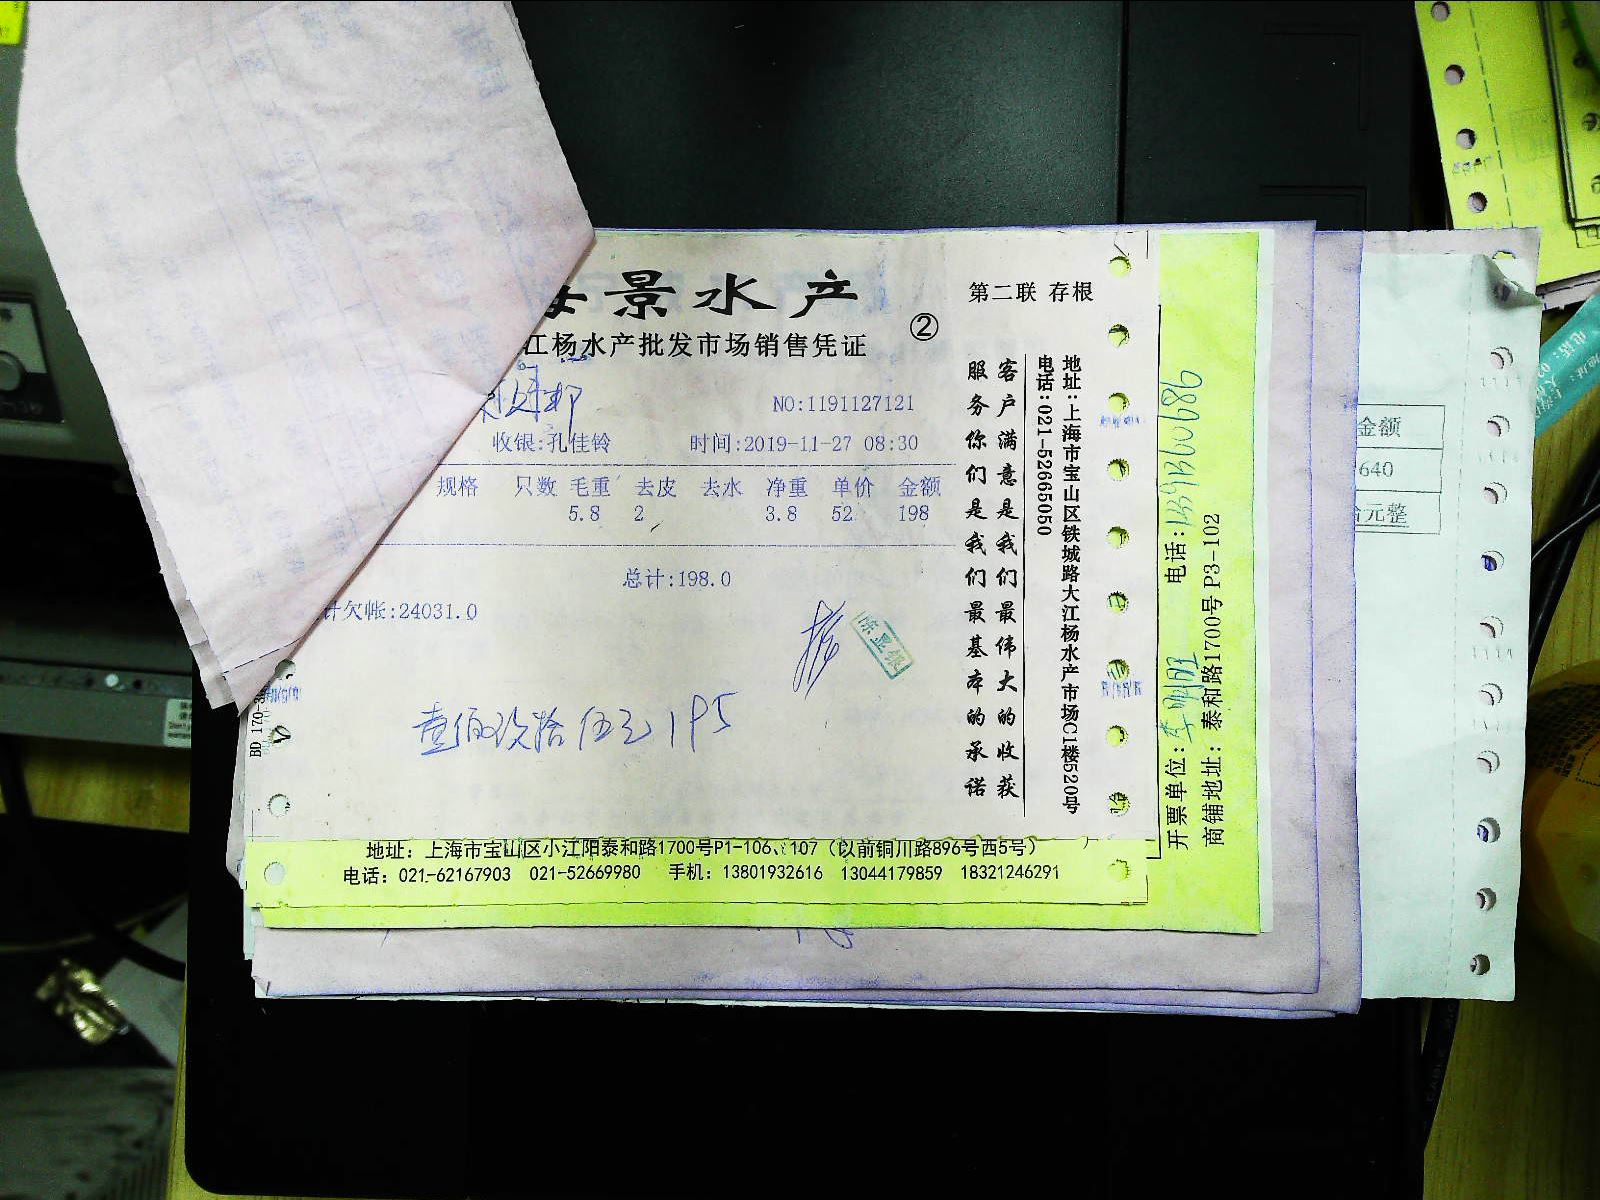 景水产
第二联 存根
②
江杨水产批发市场销售凭证
NO:1191127121
收银:孔佳铃
时间:2019-11-27 08:30
规格 只数 毛重 去皮 去水 净重 单价 金额
5.8 2 3.8 52 198
总计:198.0
计欠帐:24031.0
陈显银
壹佰玖拾伍元 195
客户满意是我们最伟大的收获
服务你们是我们最基本的承诺
地址:上海市宝山区铁城路大江杨水产市场C1楼520号
电话:021-52665050
BD 170-3
地址：上海市宝山区小江阳泰和路1700号P1-106、107（以前铜川路896号西5号）
电话：021-62167903 021-52669980 手机：13801932616 13044179859 18321246291
开票单位:
电话:
商铺地址：泰和路1700号P3-102
金额
640
元整